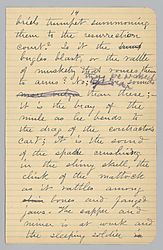 14
trumpet summoning
them to the resurrection
court? Is it the sound
bugles blast, or the rattle
of musketry that rouses them
to arms? No, sounds
than these:
it is the bray of the
mule as he bends to
the drag of the contractors
cart; it is the sound
of the spade crunching
in the shiny shell, the
clink of the mattock
as it rattles among
bones and fanged
jaws. The sapper and
miner is at work and
the sleeping soldier is